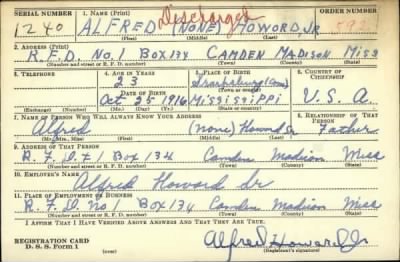 SERIAL NUMBER 1. NAME (Print) Discharged ORDER NUMBER
1240 ALFRED (NONE) HOWORD, JR
(First) (Middle) (Last)
2. ADDRESS (Print)
R.F.D. No. 1 Box 134 CAMDEN MADISON MISS
(Number and street or R. F. D. number) (Town) (County) (State)
3. TELEPHONE 4. AGE IN YEARS 5. PLACE OF BIRTH 6. COUNTRY OF CITIZENSHIP
23
DATE OF BIRTH (Town or county)
Oct 25 1916 MISSISSIPPI U.S.A.
(Exchange) (Number) (Mo.) (Day) (Yr.) (State or country)
7. NAME OF PERSON WHO WILL ALWAYS KNOW YOUR ADDRESS 8. RELATIONSHIP OF THAT PERSON
Alfred (None) Howard Sr Father
(Mr., Mrs., Miss) (First) (Middle) (Last)
9. ADDRESS OF THAT PERSON
R.F.D. #1 Box 134 Camden Madison Miss
(Number and street or R. F. D. number) (Town) (County) (State)
10. EMPLOYER'S NAME
Alfred Howard Sr
11. PLACE OF EMPLOYMENT OR BUSINESS
R.F.D. No 1 Box 134 Camden Madison Miss
(Number and street or R. F. D. number) (Town) (County) (State)
I AFFIRM THAT I HAVE VERIFIED ABOVE ANSWERS AND THAT THEY ARE TRUE.
REGISTRATION CARD
D. S. S. Form 1 (over) Alfred Howard Jr
(Registrant's signature)